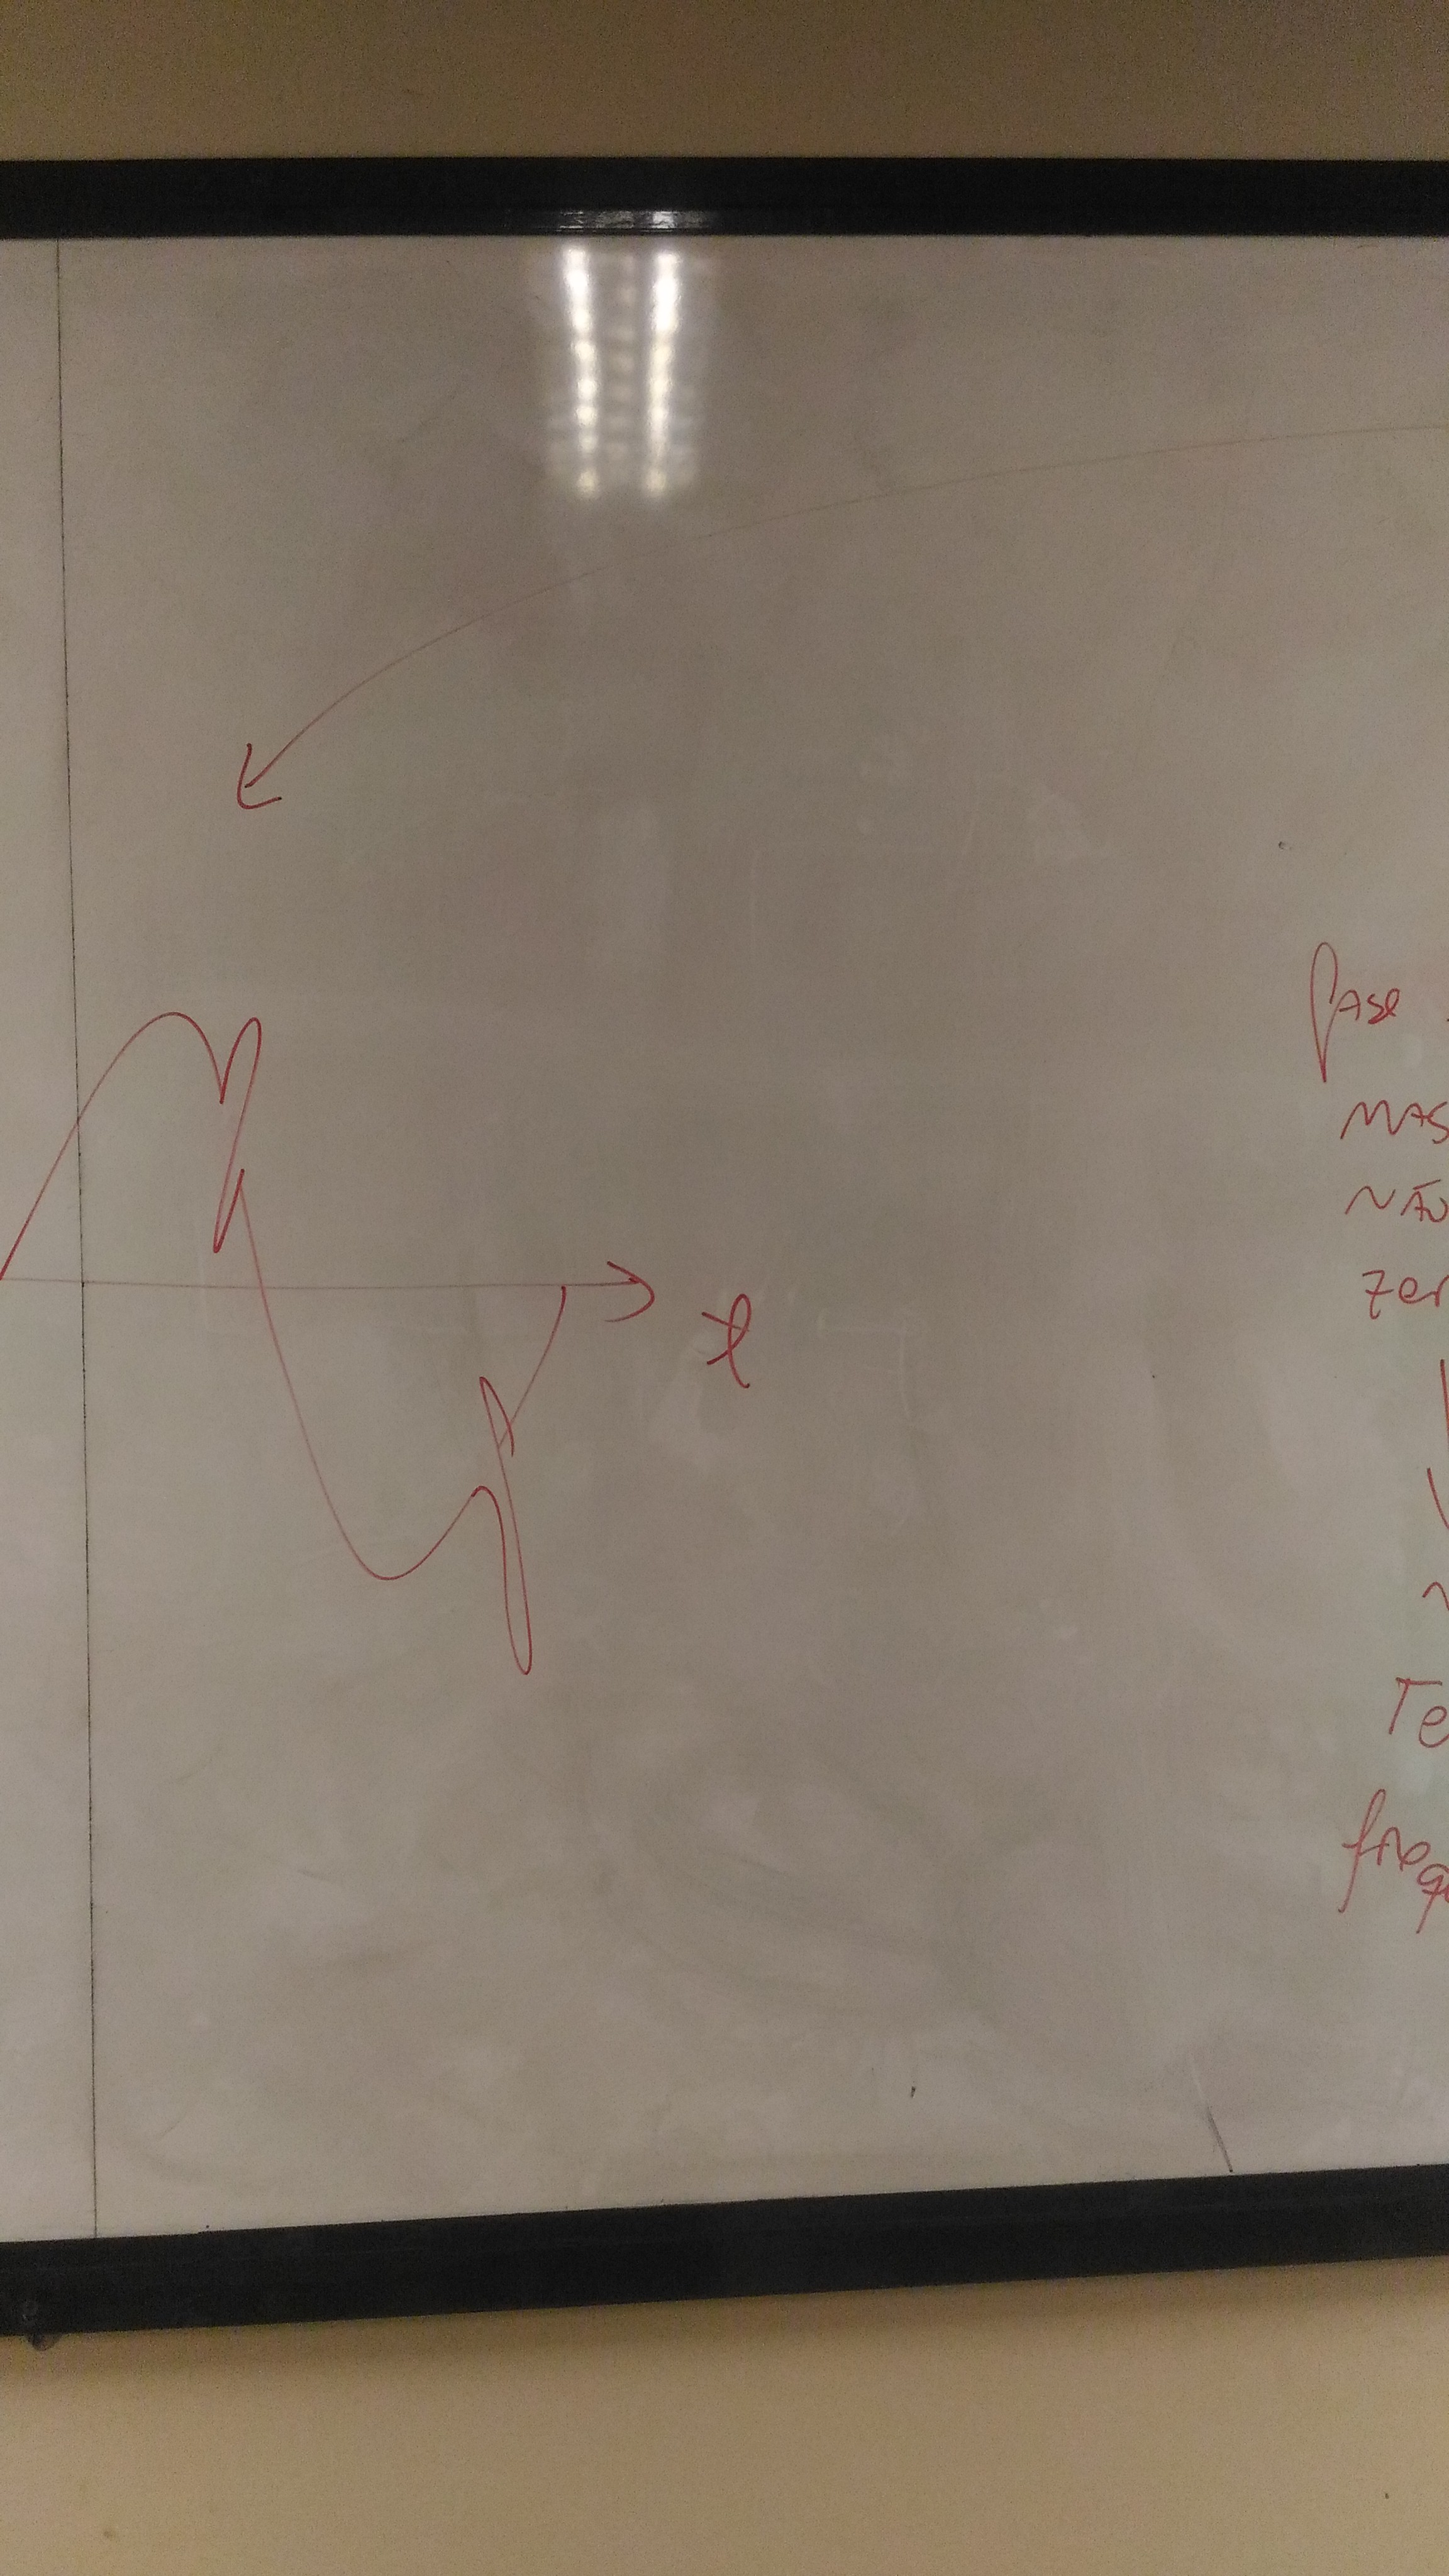 t
fase
MAS
NÃO
zer
Te
freq